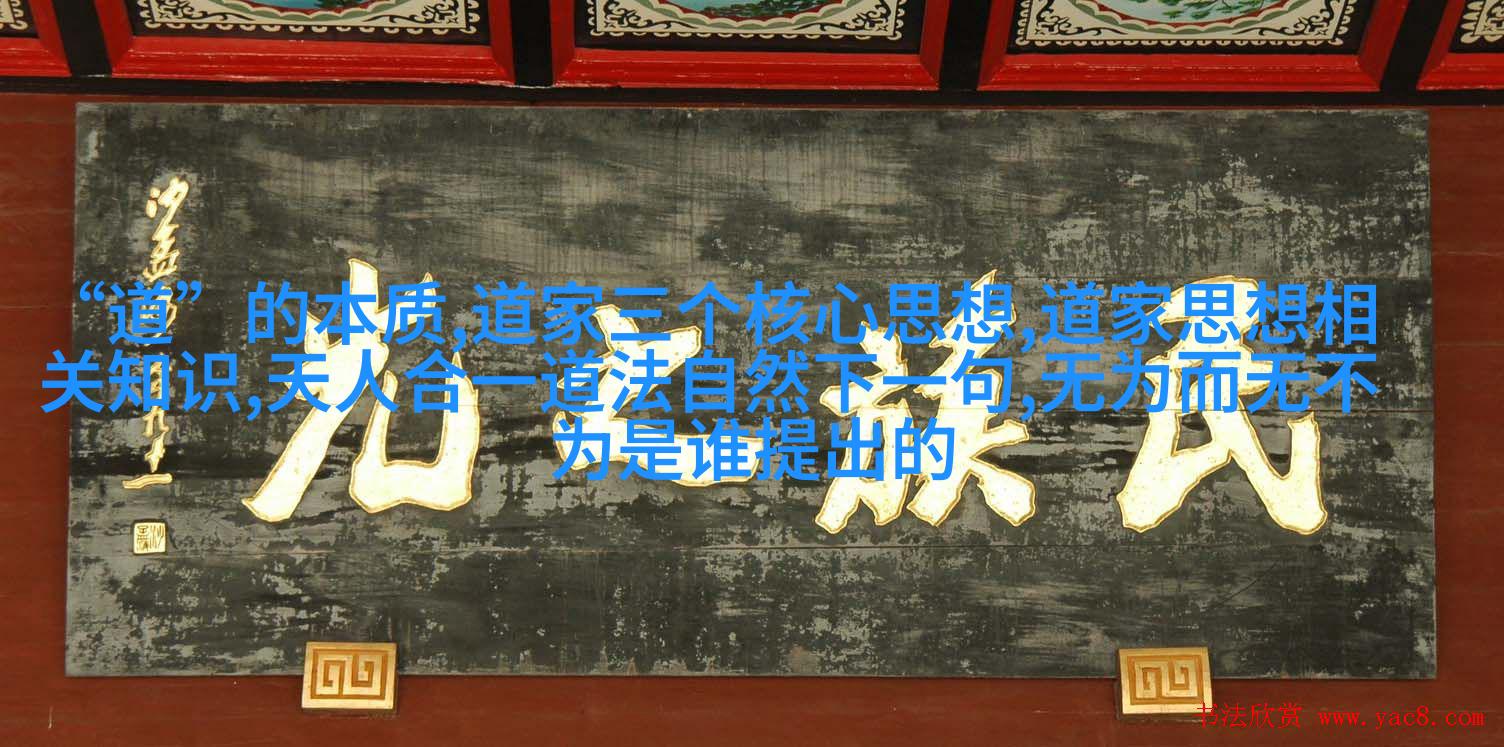 民族之光
沙孟海
九十一
“道” 的本质,道家三个核心思想,道家思想相
关知识,天人合一道法自然下一句,无为而无不
为是谁提出的
书法欣赏 www.yac8.com